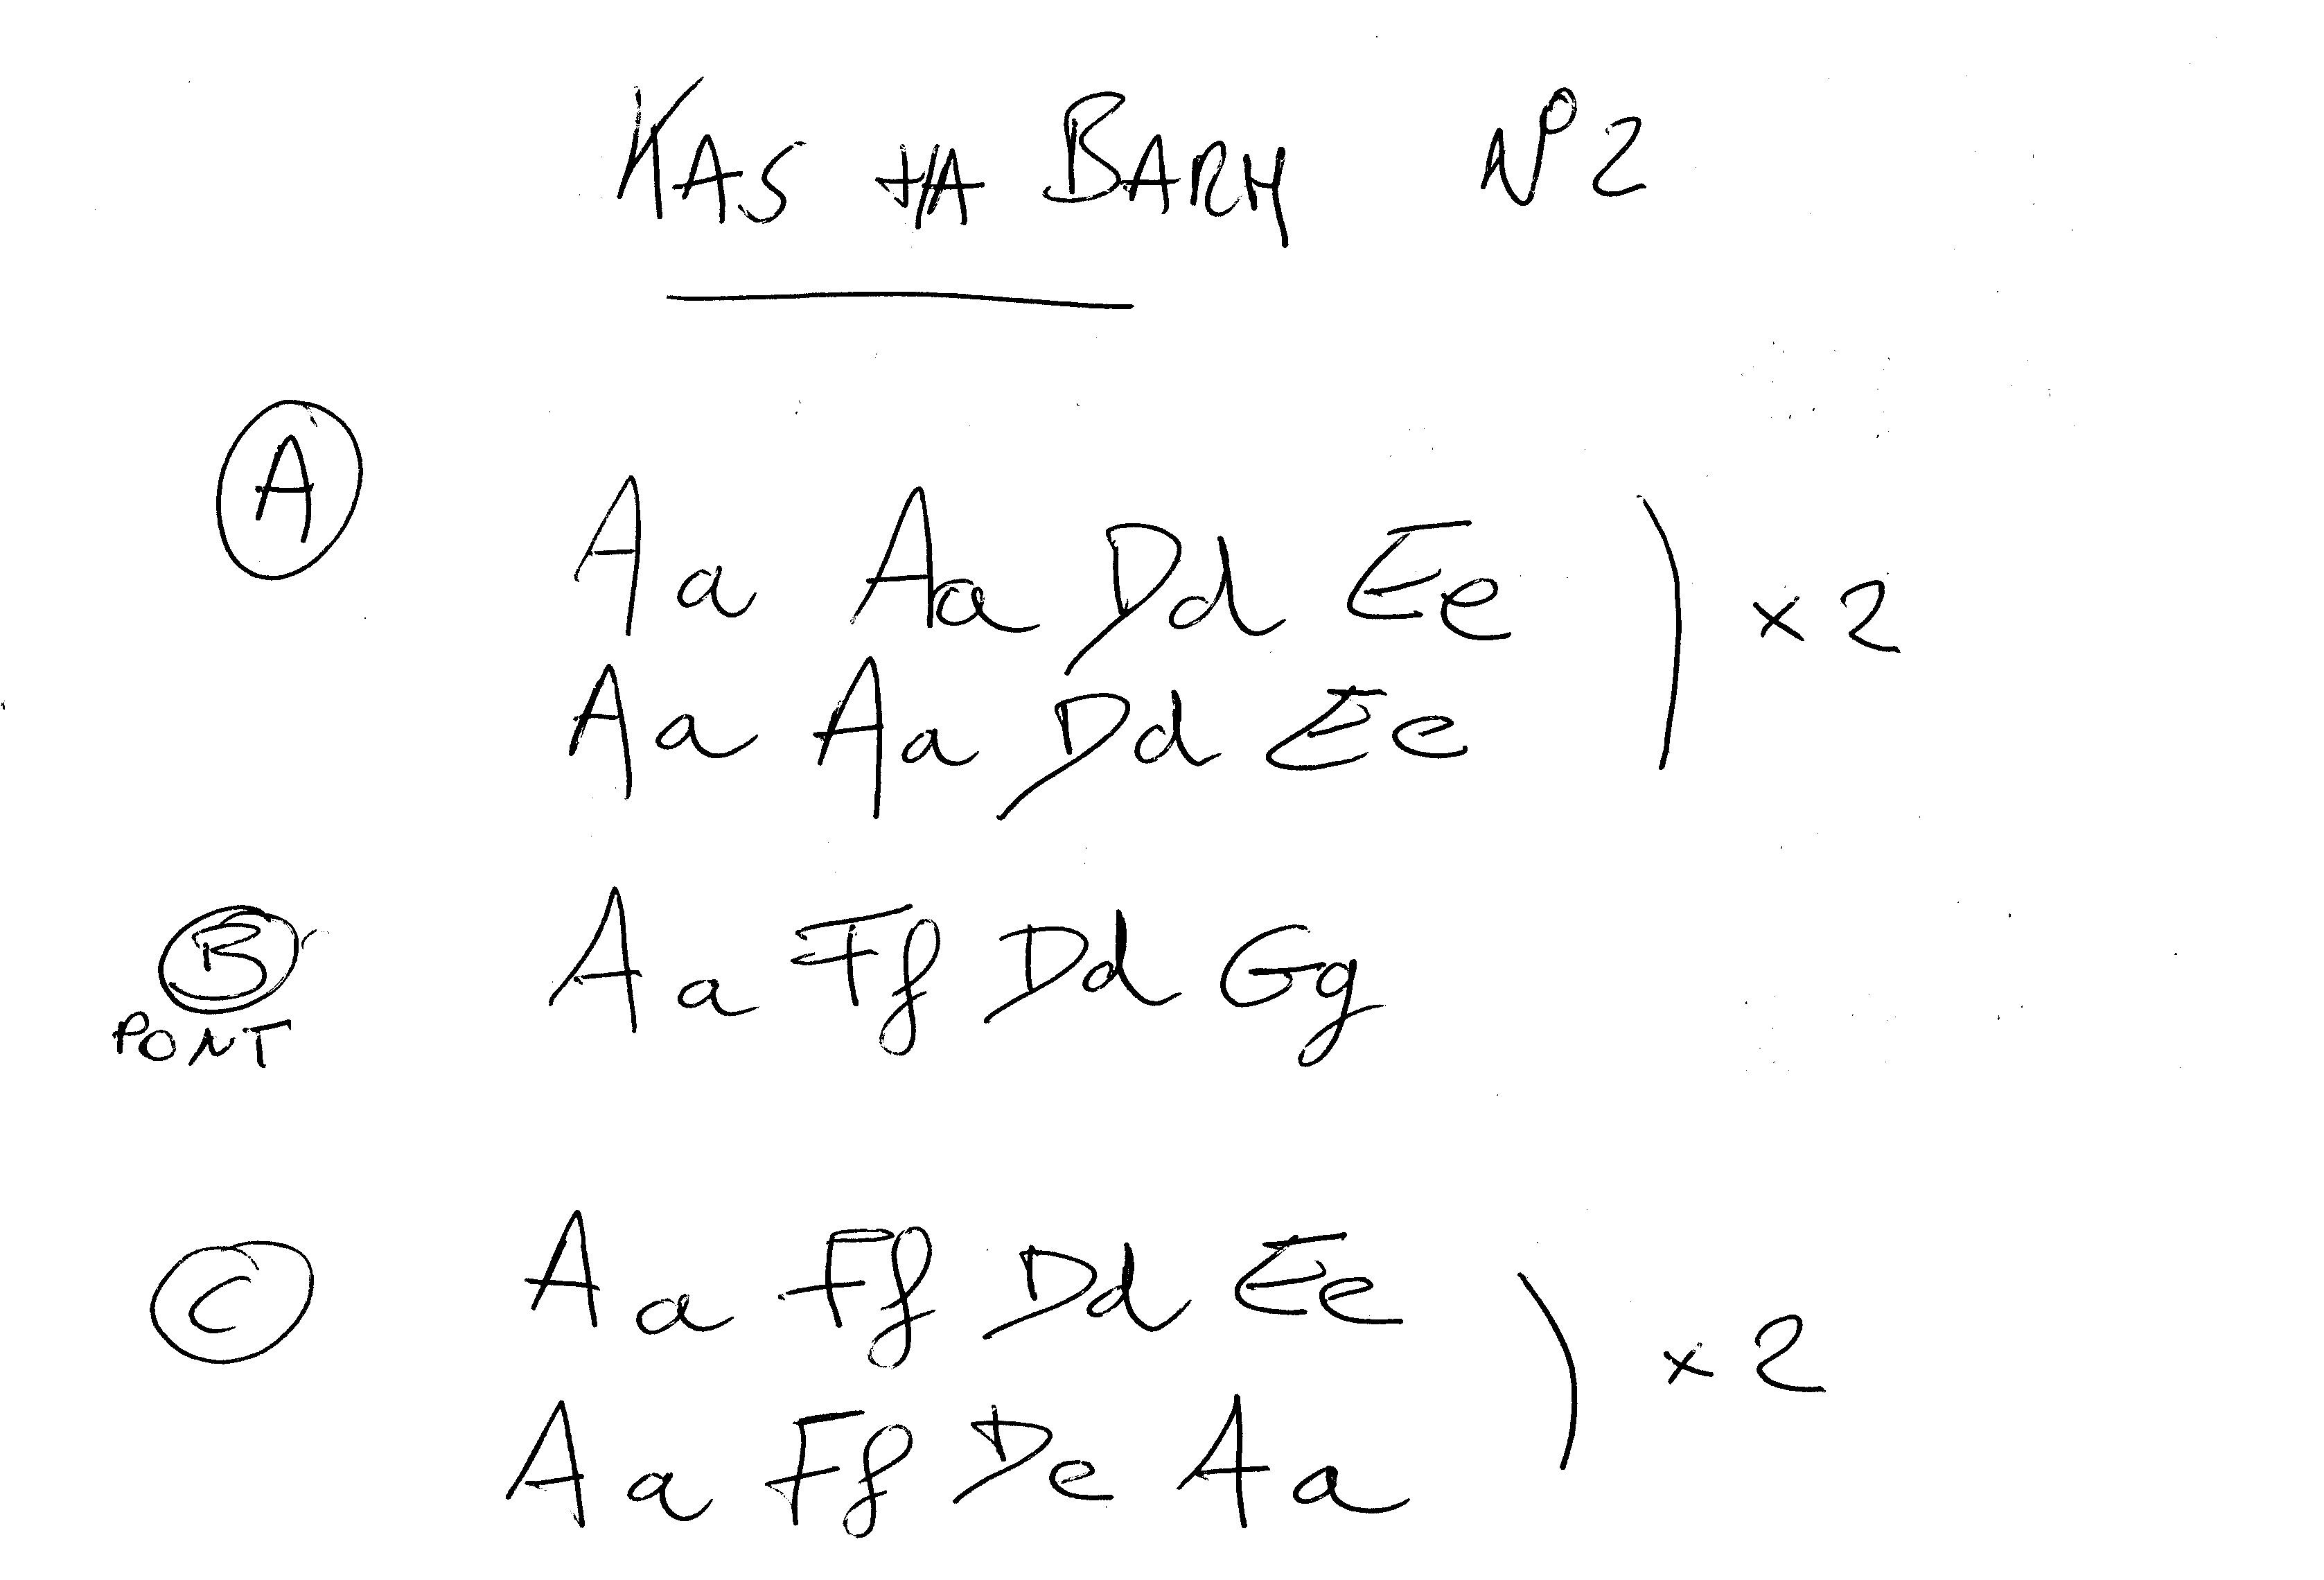 KAS HA BARH N° 2
A
Aa Aa Dd Ee
Aa Aa Dd Ee
) x 2
B
PONT
Aa Ff Dd Gg
C
Aa Ff Dd Ee
Aa Ff De Aa
) x 2